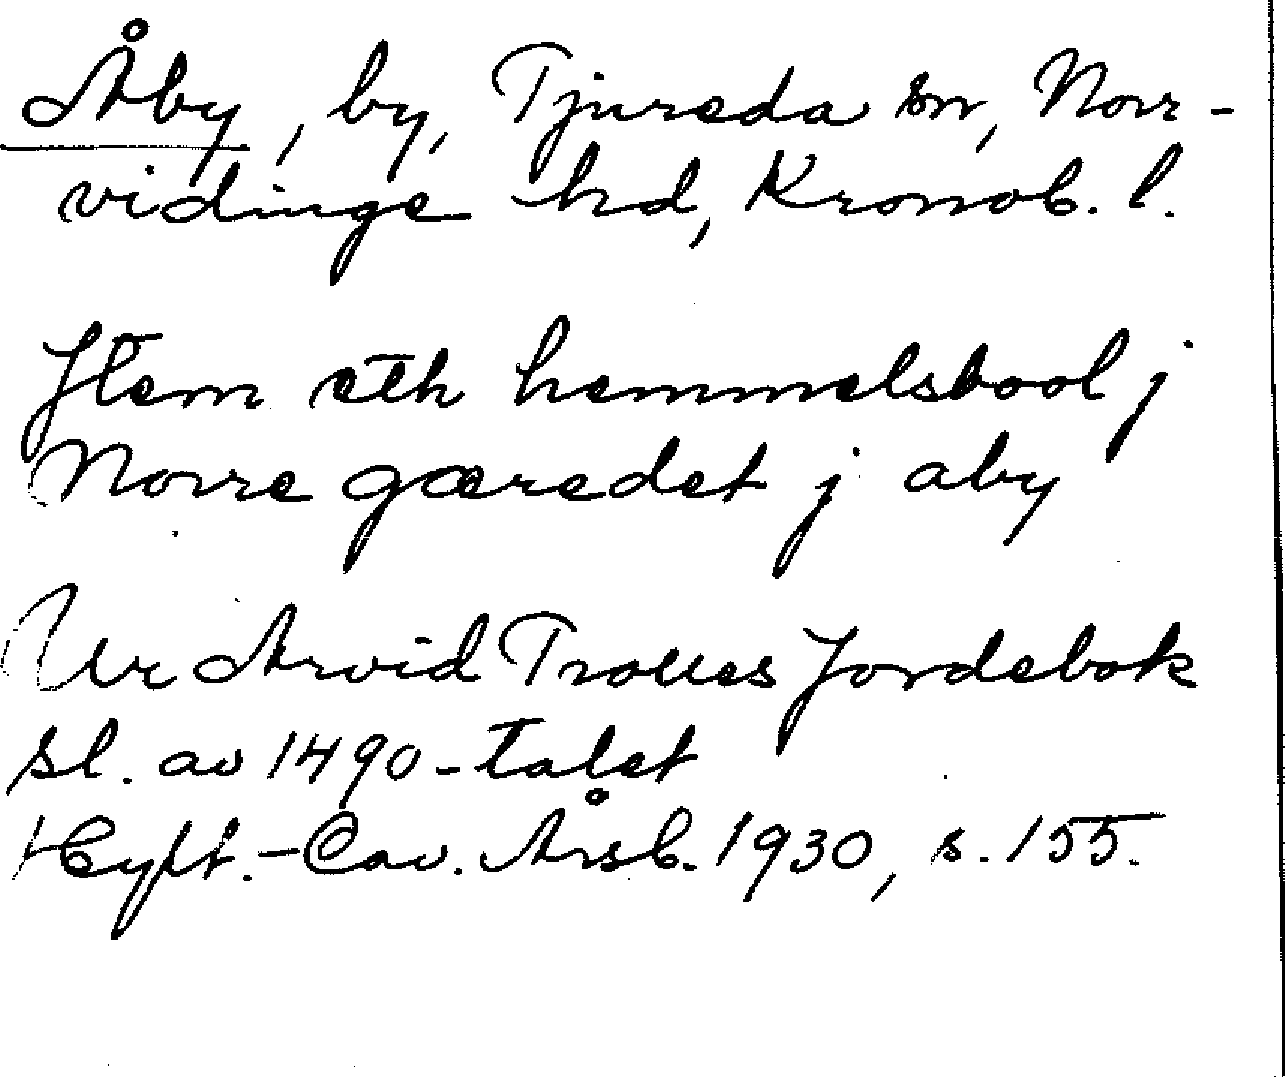 Åby, by, Tjureda sn, Norr-
vidinge hd, Kronob. l.
Jtem eth hemmelsbool j
Norre gæredet j aby
Ur Arvid Trolles Jordebok
sl. av 1490-talet
Hylt.-Cav. Årsb. 1930, s. 155.